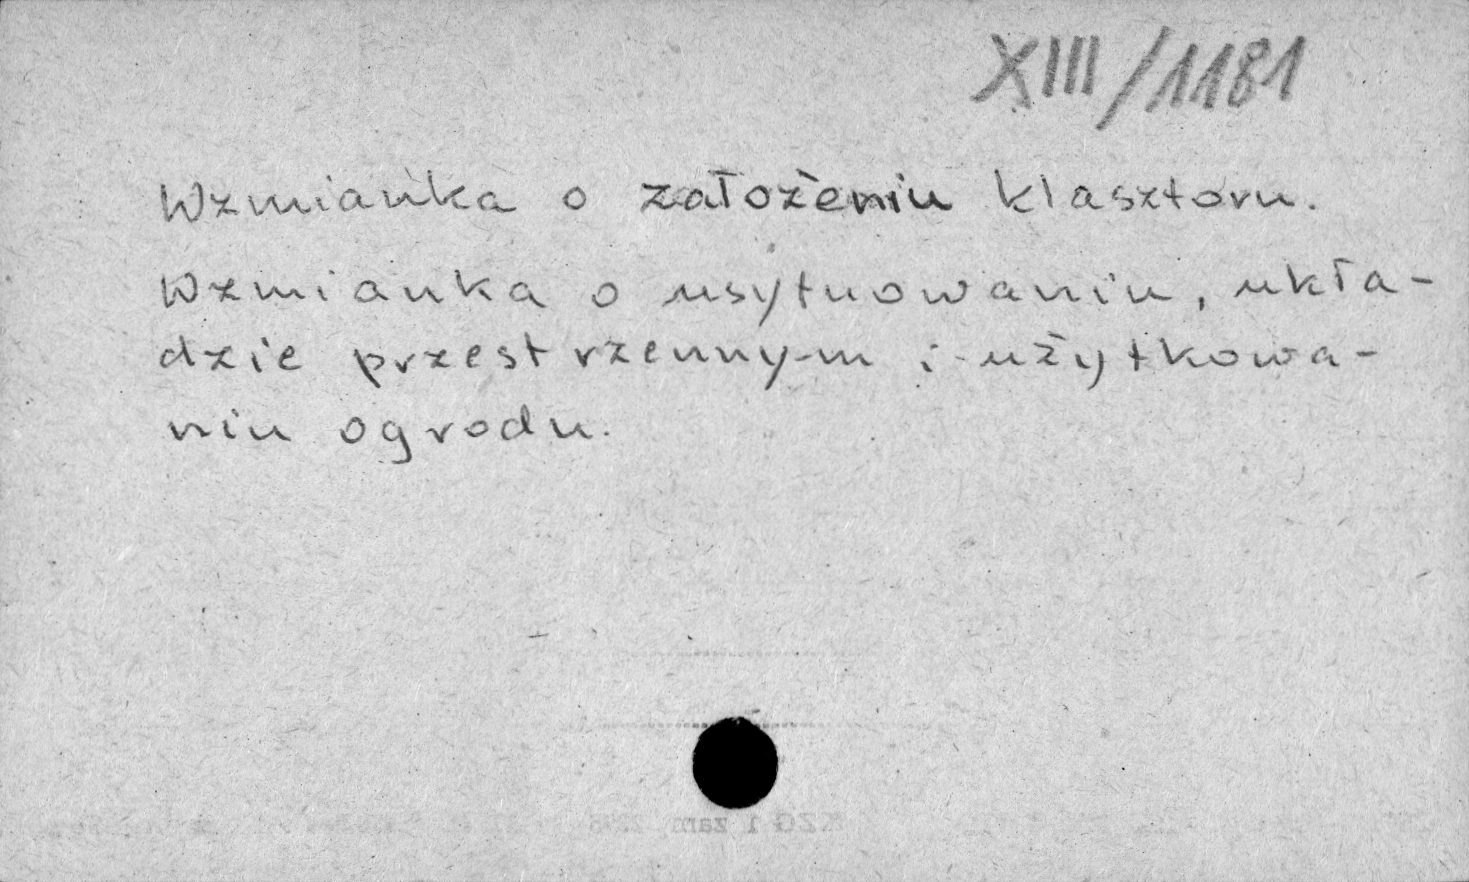 XIII/1181
Wzmianka o założeniu klasztoru.
Wzmianka o usytuowaniu, ukła-
dzie przestrzennym i użytkowa-
niu ogrodu.